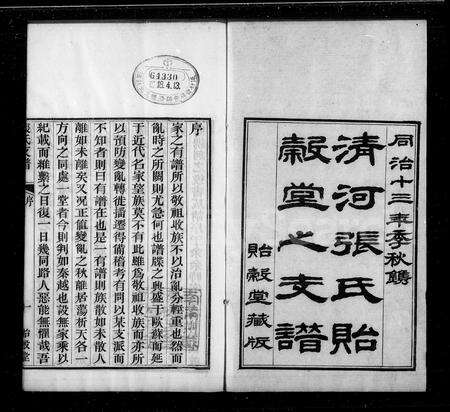 同治十三年季秋鐫
清河張氏貽
穀堂之支譜
貽穀堂藏版
序
家之有譜所以敬祖收族不以治亂分輕重也然而
亂時之所關則尤急何也譜牒之興盛于歐蘇而延
于近代名家望族莫不有此雖為敬祖收族而亦所
以預防變亂轉徙播遷得備稽考有問以某支派而
不知者則曰有譜在也是一有譜則族散如未散人
離如未離矣又况正值變亂之秋離居蕩析天各一
方向之同處一堂者今則判如秦越也設無家乘以
紀載而維繫之日復一日幾同路人惡能無懼哉吾
序
一
64330
15.4.13